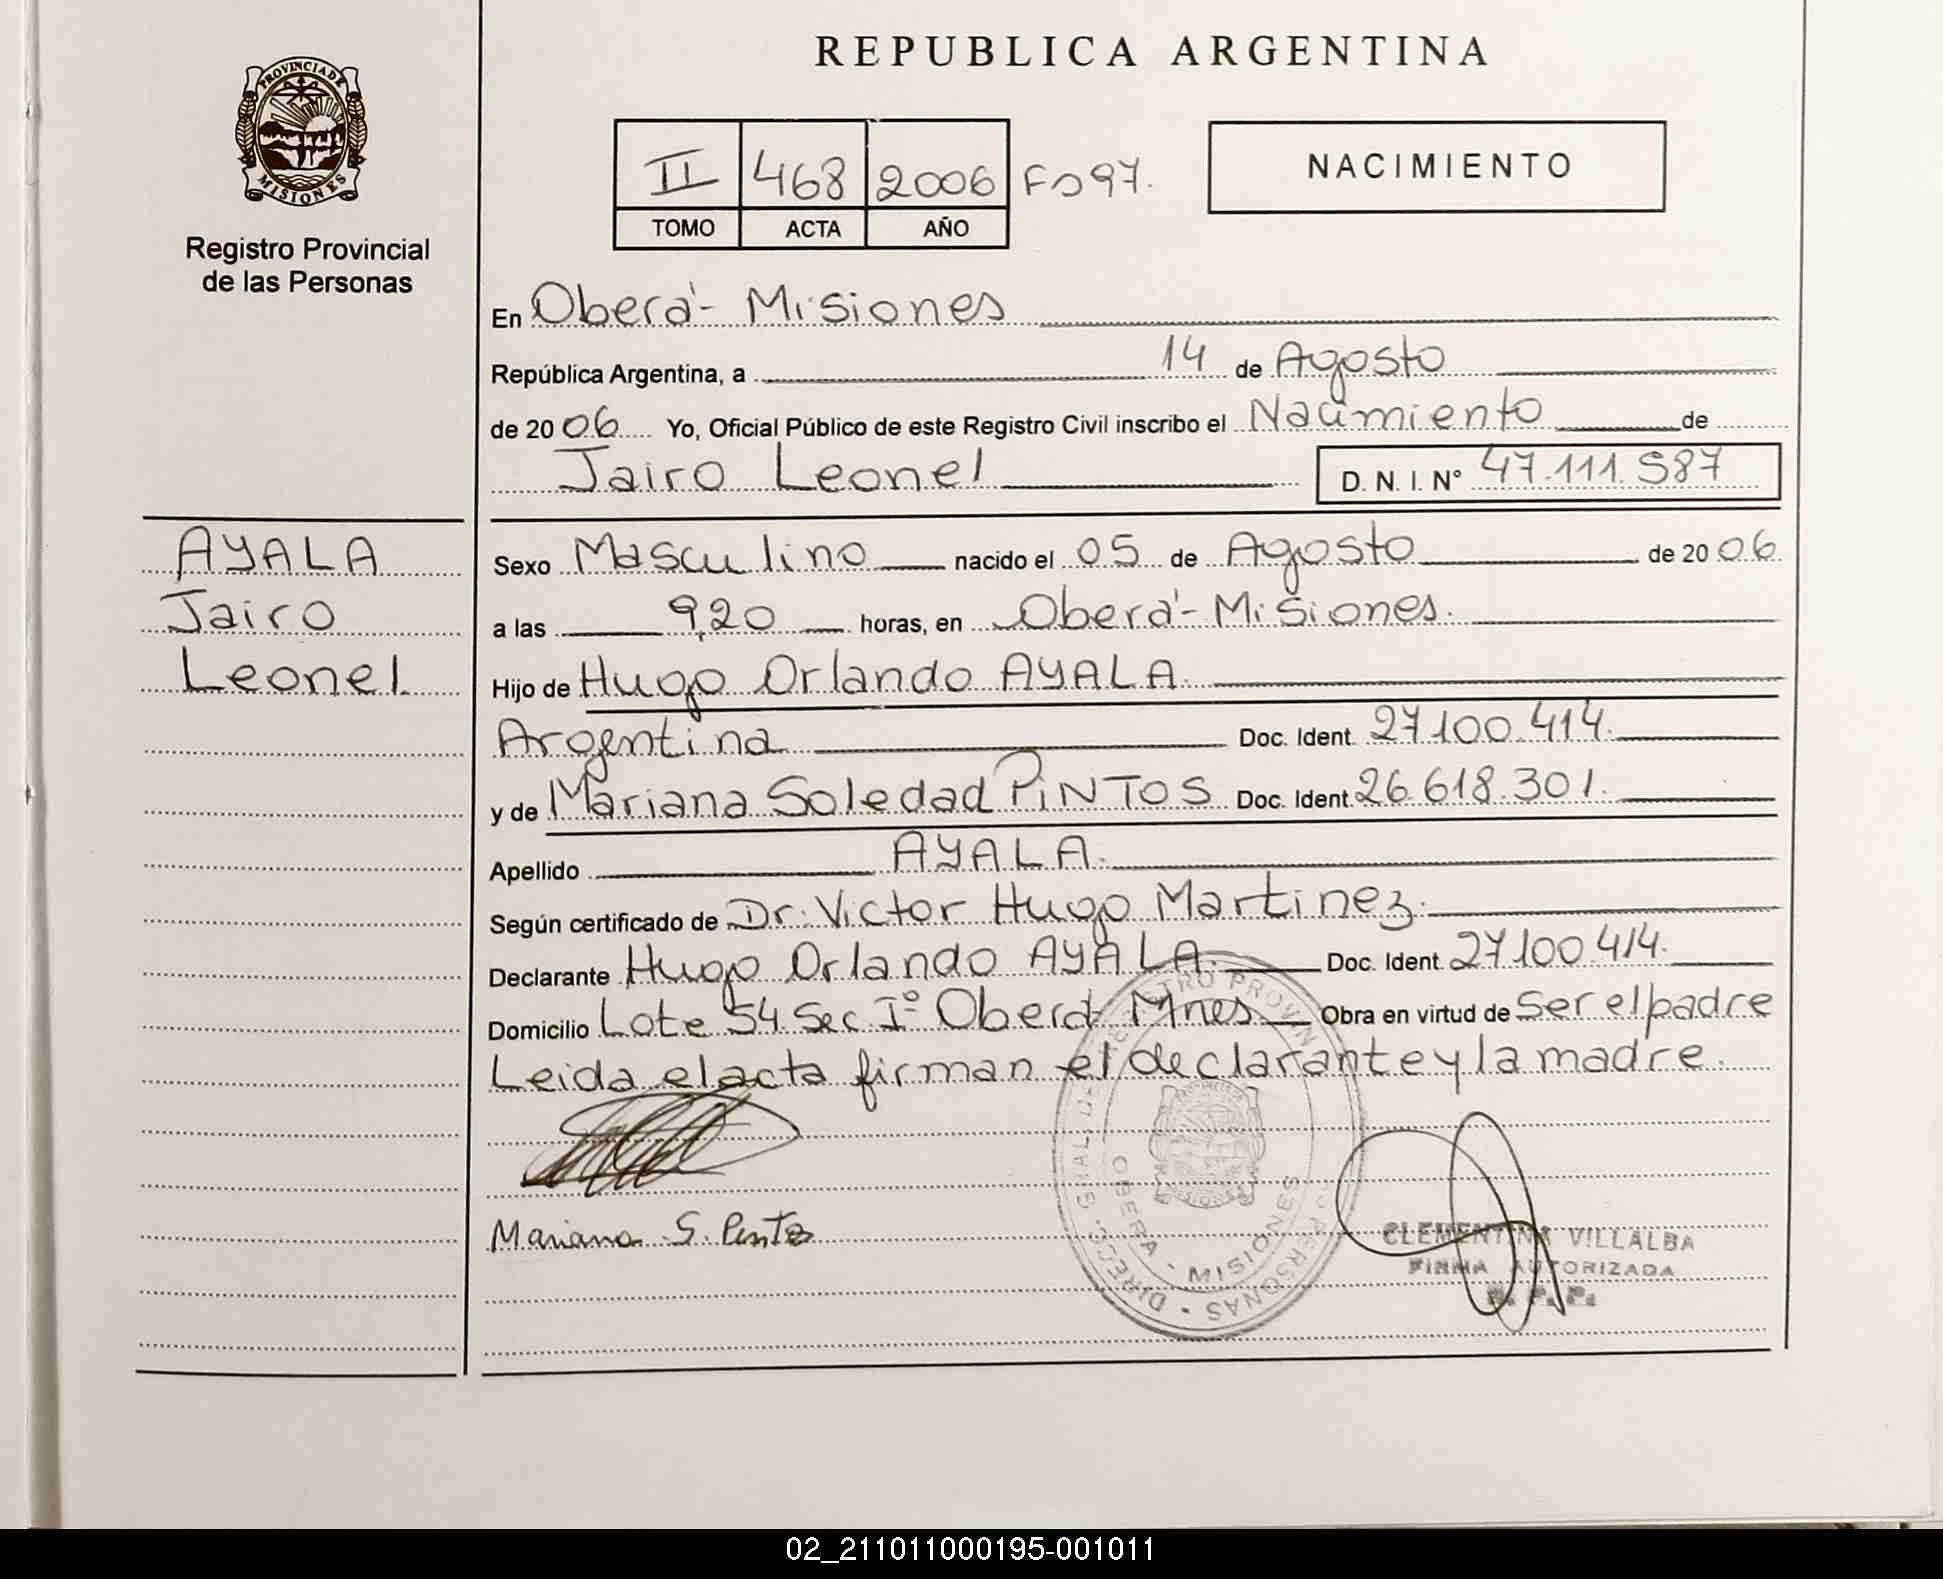 REPUBLICA ARGENTINA
PROVINCIA DE
MISIONES
Registro Provincial
de las Personas
II 468 2006 Fo 97.
TOMO ACTA AÑO
NACIMIENTO
En Oberá - Misiones
República Argentina, a 14 de Agosto
de 2006 Yo, Oficial Público de este Registro Civil inscribo el Nacimiento de
Jairo Leonel D. N. I. Nº 47.111.587
AYALA
Jairo
Leonel
Sexo Masculino nacido el 05 de Agosto de 2006
a las 9,20 horas, en Oberá - Misiones.
Hijo de Hugo Orlando AYALA.
Argentina Doc. Ident. 27.100.414.
y de Mariana Soledad PINTOS Doc. Ident. 26.618.301.
Apellido AYALA.
Según certificado de Dr. Victor Hugo Martinez.
Declarante Hugo Orlando AYALA. Doc. Ident. 27.100.414.
Domicilio Lote 54 Sec Iº Oberá Mnes Obra en virtud de Ser el padre
Leida el acta firman el declarante y la madre.
Mariana S. Pintos
OBERA - MISIONES
CLEMENTINA VILLALBA
FIRMA AUTORIZADA
R. P. P.
02_211011000195-001011